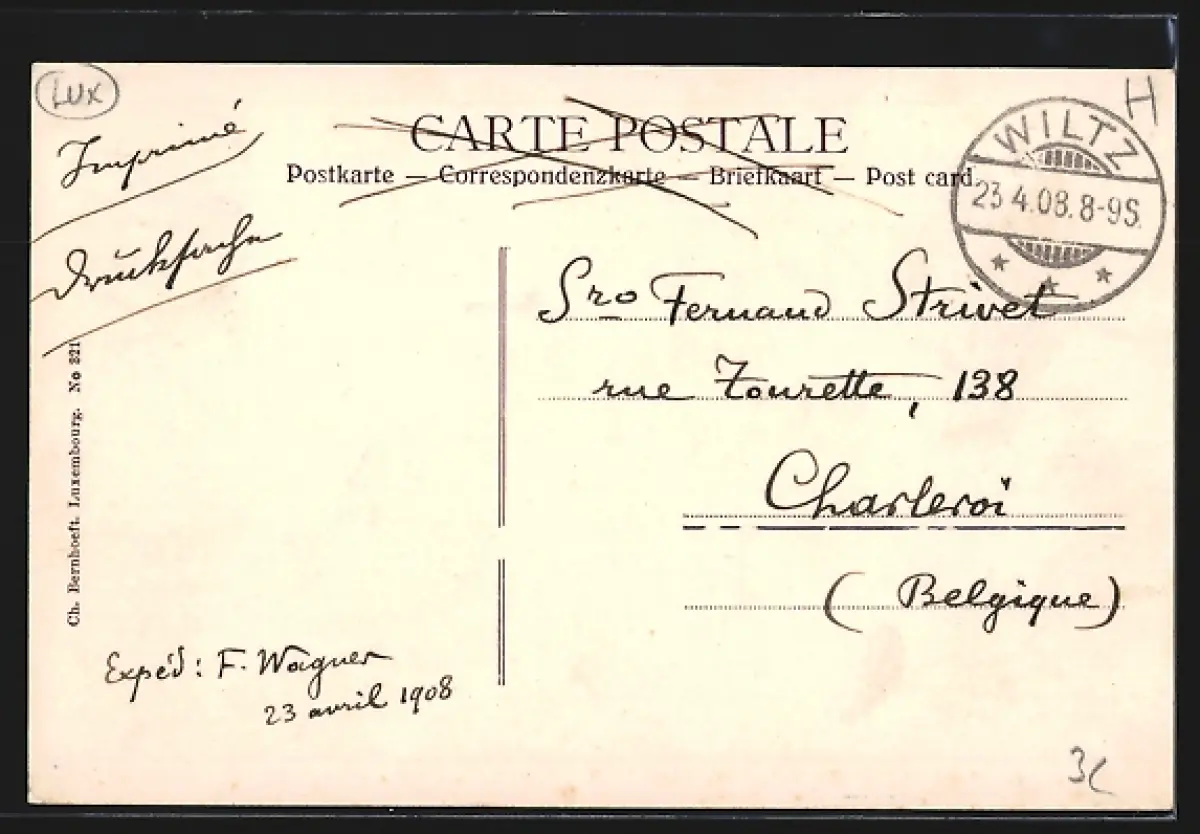 Lux
Imprimé
Drucksache
CARTE POSTALE
Postkarte — Correspondenzkarte — Briefkaart — Post card.
H
WILTZ
23.4.08.8-9S.
Fernand Strivet
rue Tourette, 138
Charleroi
(Belgique)
Ch. Bernhoeft. Luxembourg. No 221
Expéd: F. Wagner
23 avril 1908